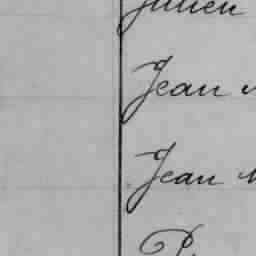 Julien
Jean
Jean